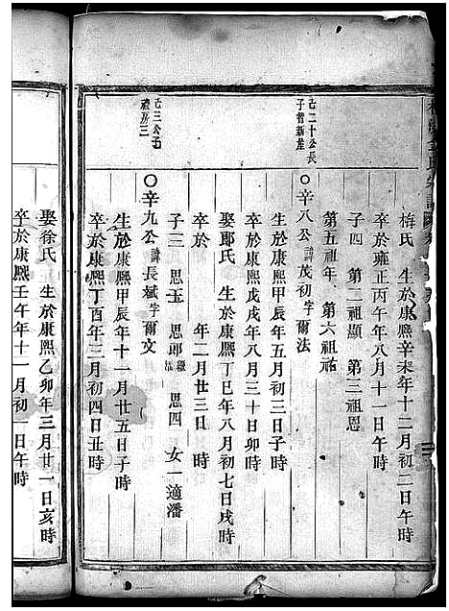 梅氏　生於康熙辛未年十二月初二日午時
卒於雍正丙午年八月十一日午時
子四　第二祖顯　第三祖恩
第五祖年　第六祖祐
己二十公長
子
○辛八公諱茂初字爾法
生於康熙甲辰年五月初三日子時
卒於康熙戊戌年八月三十日卯時
娶鄭氏　生於康熙丁巳年八月初七日戌時
卒於　　年二月廿三日　時
子三　思玉　思郎　思四　女一適潘
己三公子
○辛九公諱長斌字爾文
生於康熙甲辰年十一月廿五日子時
卒於康熙丁酉年三月初四日丑時
娶徐氏　生於康熙乙卯年三月廿一日亥時
卒於康熙壬午年十一月初一日午時